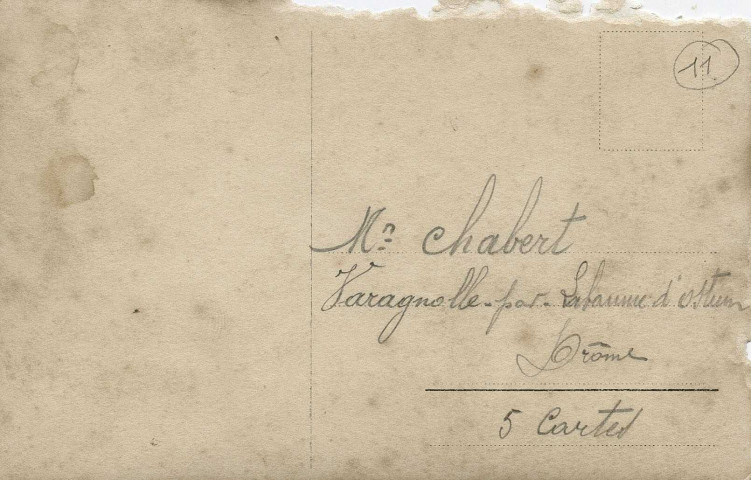 11.
Mr Chabert
Varagnolle - par - Labaume d'Ostun
Drôme
5 Cartes